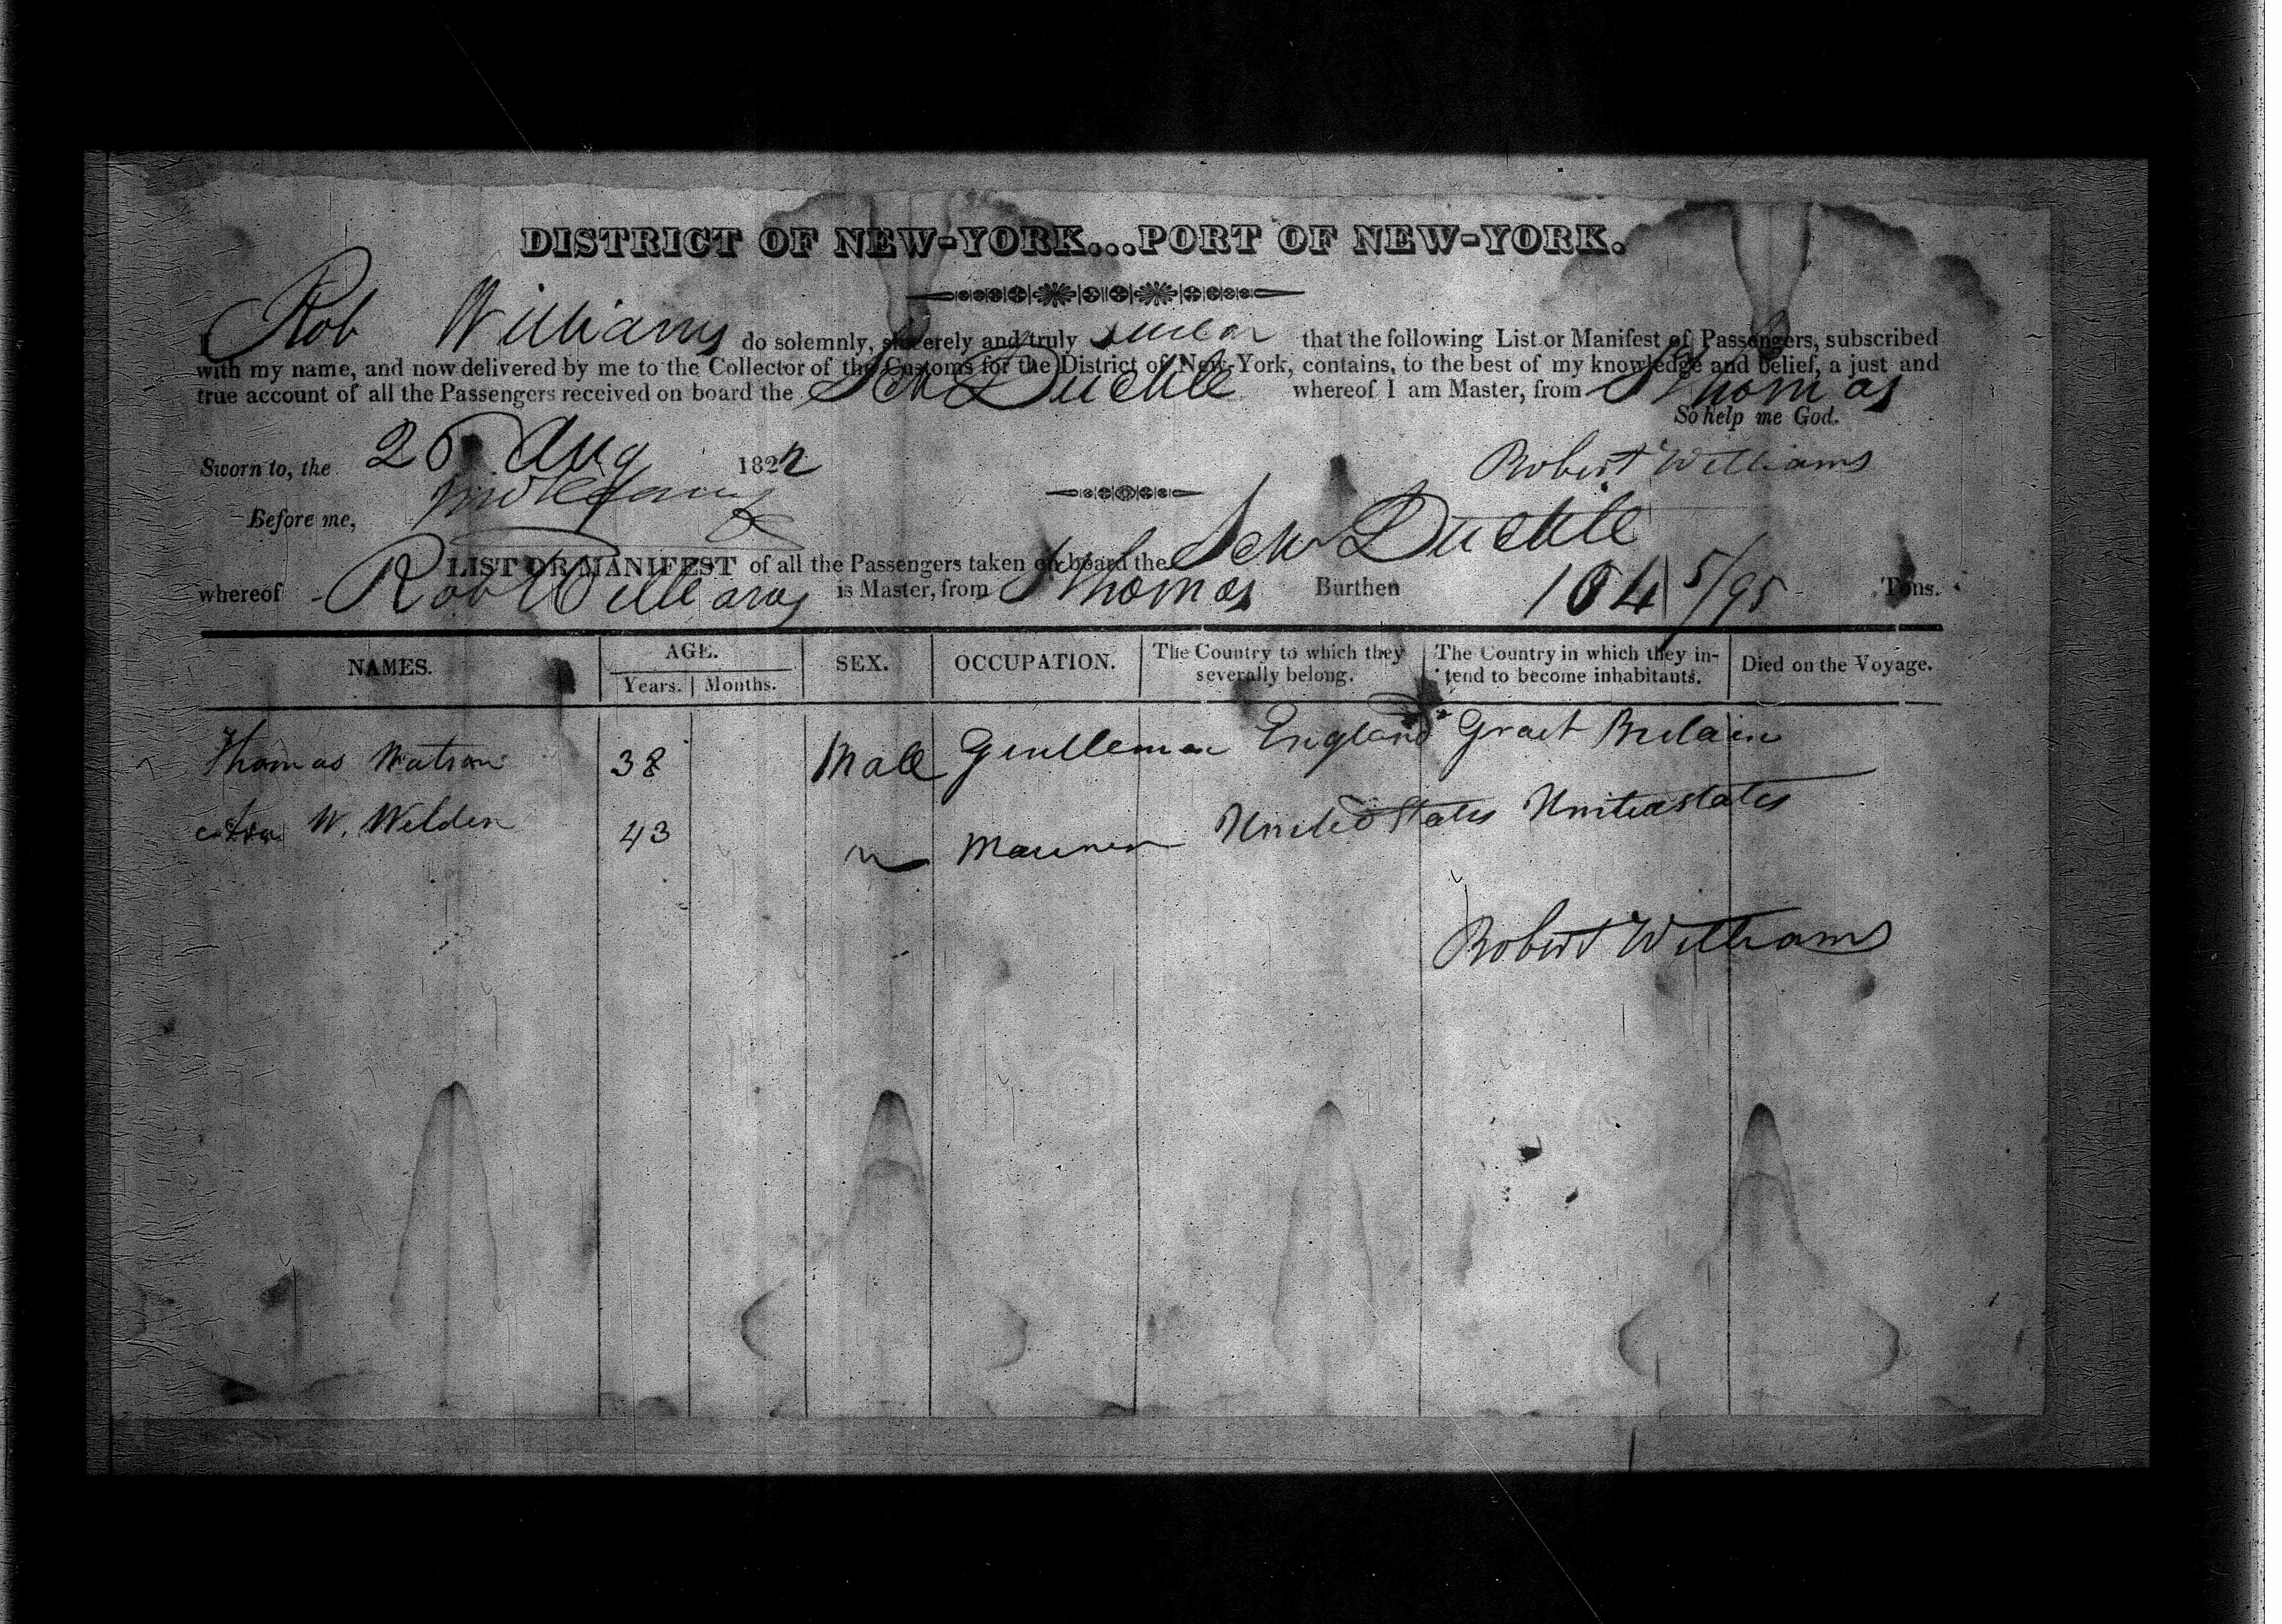 DISTRICT OF NEW-YORK...PORT OF NEW-YORK.
Rob Williams do solemnly, sincerely and truly swear that the following List or Manifest of Passengers, subscribed
with my name, and now delivered by me to the Collector of the Customs for the District of New-York, contains, to the best of my knowledge and belief, a just and
true account of all the Passengers received on board the Sch whereof I am Master, from St Thomas
So help me God.
Sworn to, the 26 Aug 1822 Robert Williams
Before me,
LIST OR MANIFEST of all the Passengers taken on board the Sch
whereof Rob Williams is Master, from St Thomas Burthen 104 5/95 Tons.
NAMES. AGE. Years. Months. SEX. OCCUPATION. The Country to which they severally belong. The Country in which they intend to become inhabitants. Died on the Voyage.
Thomas Watson 38 Male Gentleman England Great Britain
W. Welden 43 Mariner United States United States
Robert Williams